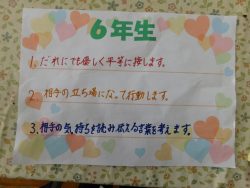 ６年生
1. だれにでも優しく平等に接します。
2. 相手の立場になって行動します。
3. 相手の気持ちを読み伝える言葉を考えます。